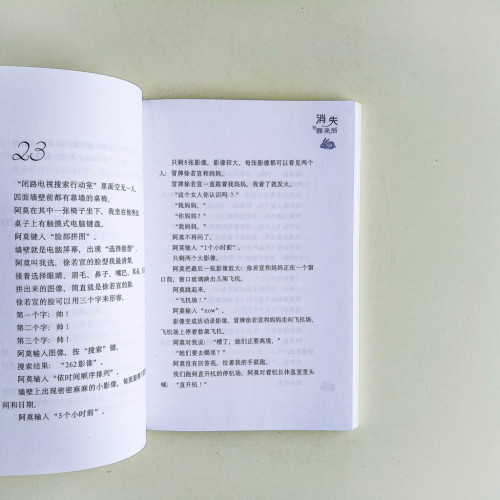 23
“闭路电视搜索行动室”里面空无一人。
四面墙壁前都有靠墙的桌椅。
阿莫在其中一张椅子坐下，我坐在他旁边。
桌子上有触摸式电脑键盘。
阿莫键入“脸部拼图”。
墙壁就是电脑屏幕，出现“选择脸型”。
阿莫叫我选，徐若宣的脸型我最清楚。
接着选择眼睛、眉毛、鼻子、嘴巴、耳朵
拼出来的图像，简直就是徐若宣的脸。
徐若宣的脸可以用三个字来形容，
第一个字：帅！
第二个字：帅！
第三个字：帅！
阿莫输入图像，按“搜索”键。
搜索结果：“262影像”。
阿莫输入“依时间顺序排列”。
墙壁上出现密密麻麻的小影像，每张影像
间和日期。
阿莫输入“3个小时前”。
消失
醒来后
只剩8张影像，影像较大，每张影像都可以看见两个
人：冒牌徐若宣和妈妈。
冒牌徐若宣一直跟着我妈妈，我看了就发火。
“这个女人你认识吗？”
“我妈妈。”
“你妈？”
“我妈妈。”
阿莫不再问了。
阿莫输入“1个小时前”。
只剩两个大影像。
阿莫把最后一张影像放大：徐若宣和妈妈正在一个窗
口前，窗口玻璃映出几架飞机。
阿莫跳起来。
“飞机场！”
阿莫输入“now”。
影像变成活动录影像，冒牌徐若宣和妈妈走向飞机场，
飞机场上停着数架飞机。
阿莫对我说：“糟了，他们正要离境。”
“她们要去哪里？”
阿莫没有回答我，拉着我的手就跑。
我们跑到直升机的停机场，阿莫对着机长休息室里头
喊：“直升机！”